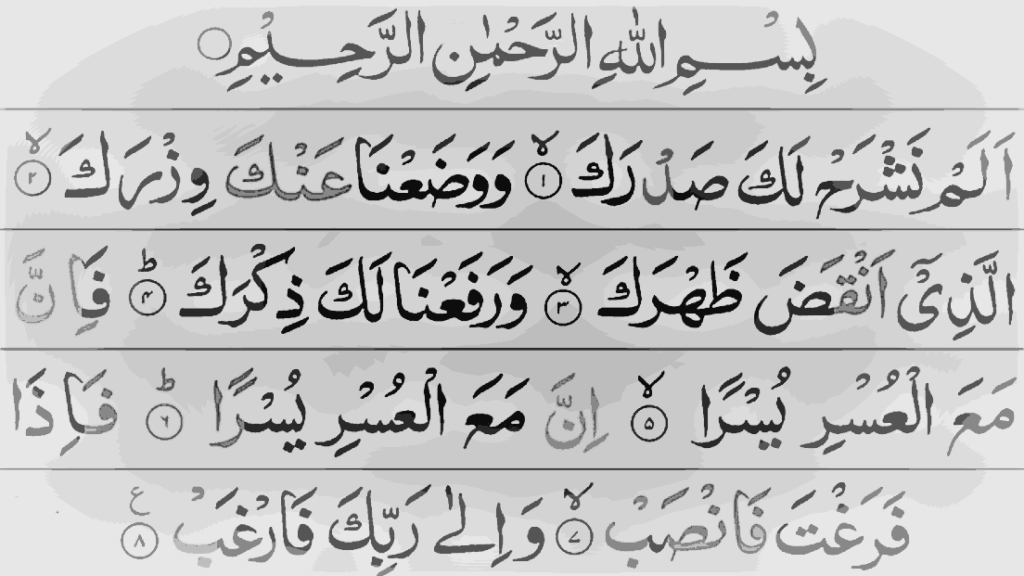 بِسْمِ اللهِ الرَّحْمٰنِ الرَّحِيْمِ
اَلَمْ نَشْرَحْ لَكَ صَدْرَكَ ۙ﴿۱﴾ وَوَضَعْنَا عَنْكَ وِزْرَكَ ۙ﴿۲﴾
الَّذِیْۤ اَنْقَضَ ظَهْرَكَ ۙ﴿۳﴾ وَرَفَعْنَا لَكَ ذِكْرَكَ ؕ﴿۴﴾ فَاِنَّ
مَعَ الْعُسْرِ يُسْرًا ۙ﴿۵﴾ اِنَّ مَعَ الْعُسْرِ يُسْرًا ؕ﴿۶﴾ فَاِذَا
فَرَغْتَ فَانْصَبْ ۙ﴿۷﴾ وَاِلٰى رَبِّكَ فَارْغَبْ ﴿۸﴾ ع